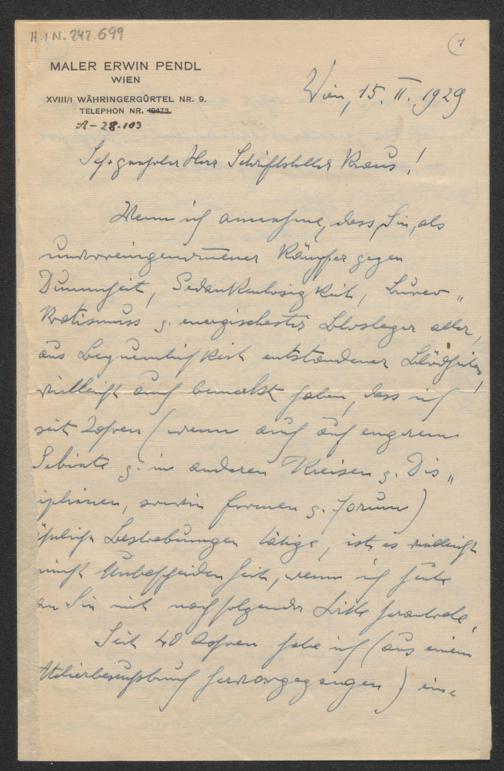 H.I.N. 242.699
(1
MALER ERWIN PENDL
WIEN
XVIII/1 WÄHRINGERGÜRTEL NR. 9.
TELEPHON NR. 19473.
A-28.103
Wien, 15. II. 1929
Sehr geehrter Herr Schriftsteller Kraus!
Wenn ich annehme, dass Sie, als
unvoreingenommener Kämpfer gegen
Dummheit, Gedankenlosigkeit, Bureo„
kratismuss u. energischester Blosleger aller,
aus Bequemlichkeit entstandener Blödheiten,
vielleicht auch bemerkt haben, dass ich
seit Jahren (wenn auch auf engerem
Gebiete u. in anderen Kreisen u. Dis„
iplinen, sowie Formen u. Forum)
ähnliche Bestrebungen tätige, ist es vielleicht
nicht Unbescheidenheit, wenn ich heute
an Sie mit nachfolgender Bitte herantrete.
Seit 40 Jahren habe ich (aus einem
Atelierbesuchsbuch hervorgegangen) eine